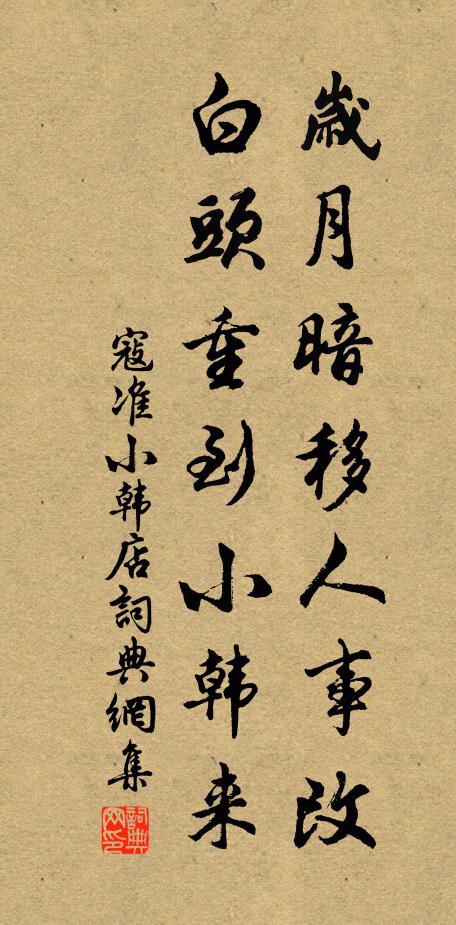 歲月暗移人事改
白頭重到小韩来
寇准小韩店詞典網集
詞典网印